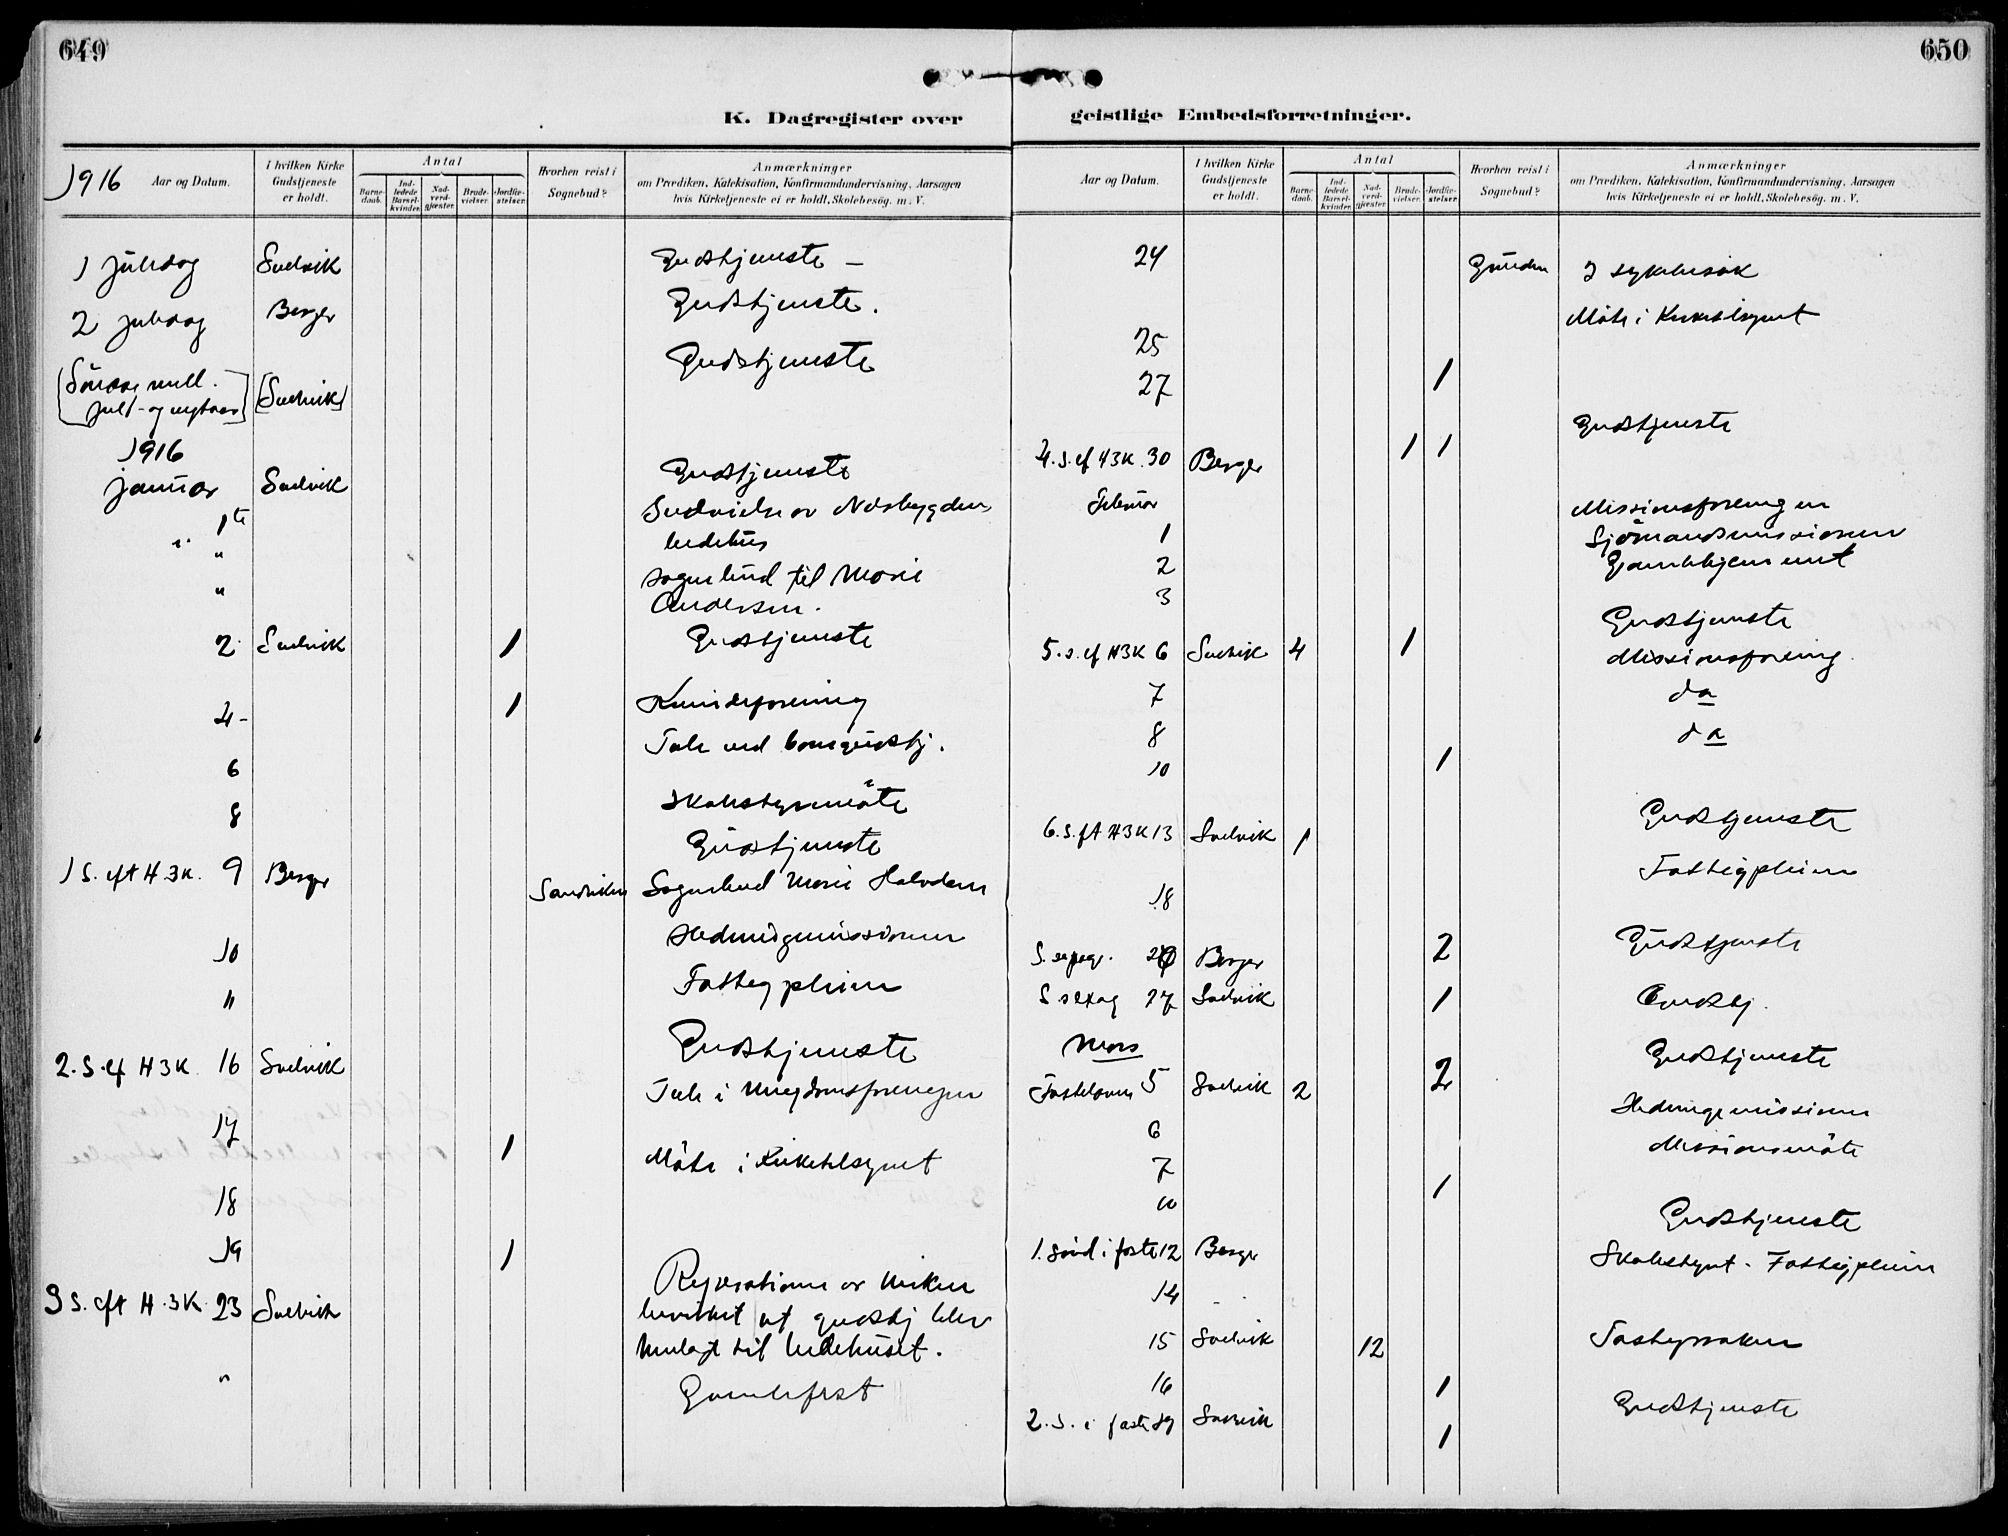 649
650
K. Dagregister over geistlige Embedsforretninger.
1916 Aar og Datum.
I hvilken Kirke Gudstjeneste er holdt.
Antal
Barnedaab.
Indledede Barselkvinder.
Nadverdgjæster.
Brudevielser.
Jordfæstelser.
Hvorhen reist i Sognebud?
Anmærkninger
om Prædiken, Katekisation, Konfirmandundervisning, Aarsagen
hvis Kirketjeneste ei er holdt, Skolebesög. m. V.
1 juledag Svelvik Gudstjeneste –
2 juledag Berger Gudstjeneste.
[Søndag mell. [Svelvik] Gudstjeneste
jul - og nytaar]
1916
januar Svelvik Gudstjeneste
1te Indvielse av Nordbygdens
" bedehus
" sognebud til Marie
Andersen.
2 Svelvik 1 Gudstjeneste
4- 1 Kvindeforening
6 Tale ved barnegudstj.
8 Skolestyremöte
1 S. eft H 3 K. 9 Berger Gudstjeneste
Sandviken Sognebud Marie Halvorsen
10 Hedningemissionen
11 Fattigpleien
2. S. ef H 3 K. 16 Svelvik Gudstjeneste
17 1 Tale i Ungdomsforeningen
18 Möte i Kirketilsynet
19 1
3 S. eft H. 3 K. 23 Svelvik Reparationen av kirken
bevirket at gudstj blev
henlagt til bedehuset.
" Gamlefest
Aar og Datum.
I hvilken Kirke Gudstjeneste er holdt.
Antal
Barnedaab.
Indledede Barselkvinder.
Nadverdgjæster.
Brudevielser.
Jordfæstelser.
Hvorhen reist i Sognebud?
Anmærkninger
om Prædiken, Katekisation, Konfirmandundervisning, Aarsagen
hvis Kirketjeneste ei er holdt, Skolebesög. m. V.
24 2 sykebesök
25 Möte i Kirketilsynet
27 1
4. S. ef H 3 K. 30 Berger 1 1 Gudstjeneste
Februar
1 Missionsforeningen
2 Sjömandsmissionen
3 Gamlehjemmet
5. s. ef H 3 K 6 Svelvik 4 1 Gudstjeneste
7 Missionsforening.
8 do
10 1 do
6. S. eft H 3 K 13 Svelvik 1 Gudstjeneste
18 Fattigpleien
S. septuag. 20 Berger 2 Gudstjeneste
S sexag 27 Svelvik 1 Gudstj.
Mars
Fastelavn 5 Svelvik 2 2 Gudstjeneste
6 Hedningemissionen
7 Missionsmöte
10 1
1. sönd i faste 12 Berger Gudstjeneste
14 Skolestyret - Fattigpleien
15 Svelvik 12
16 1
2. S. i faste 19 Svelvik 1 Gudstjeneste